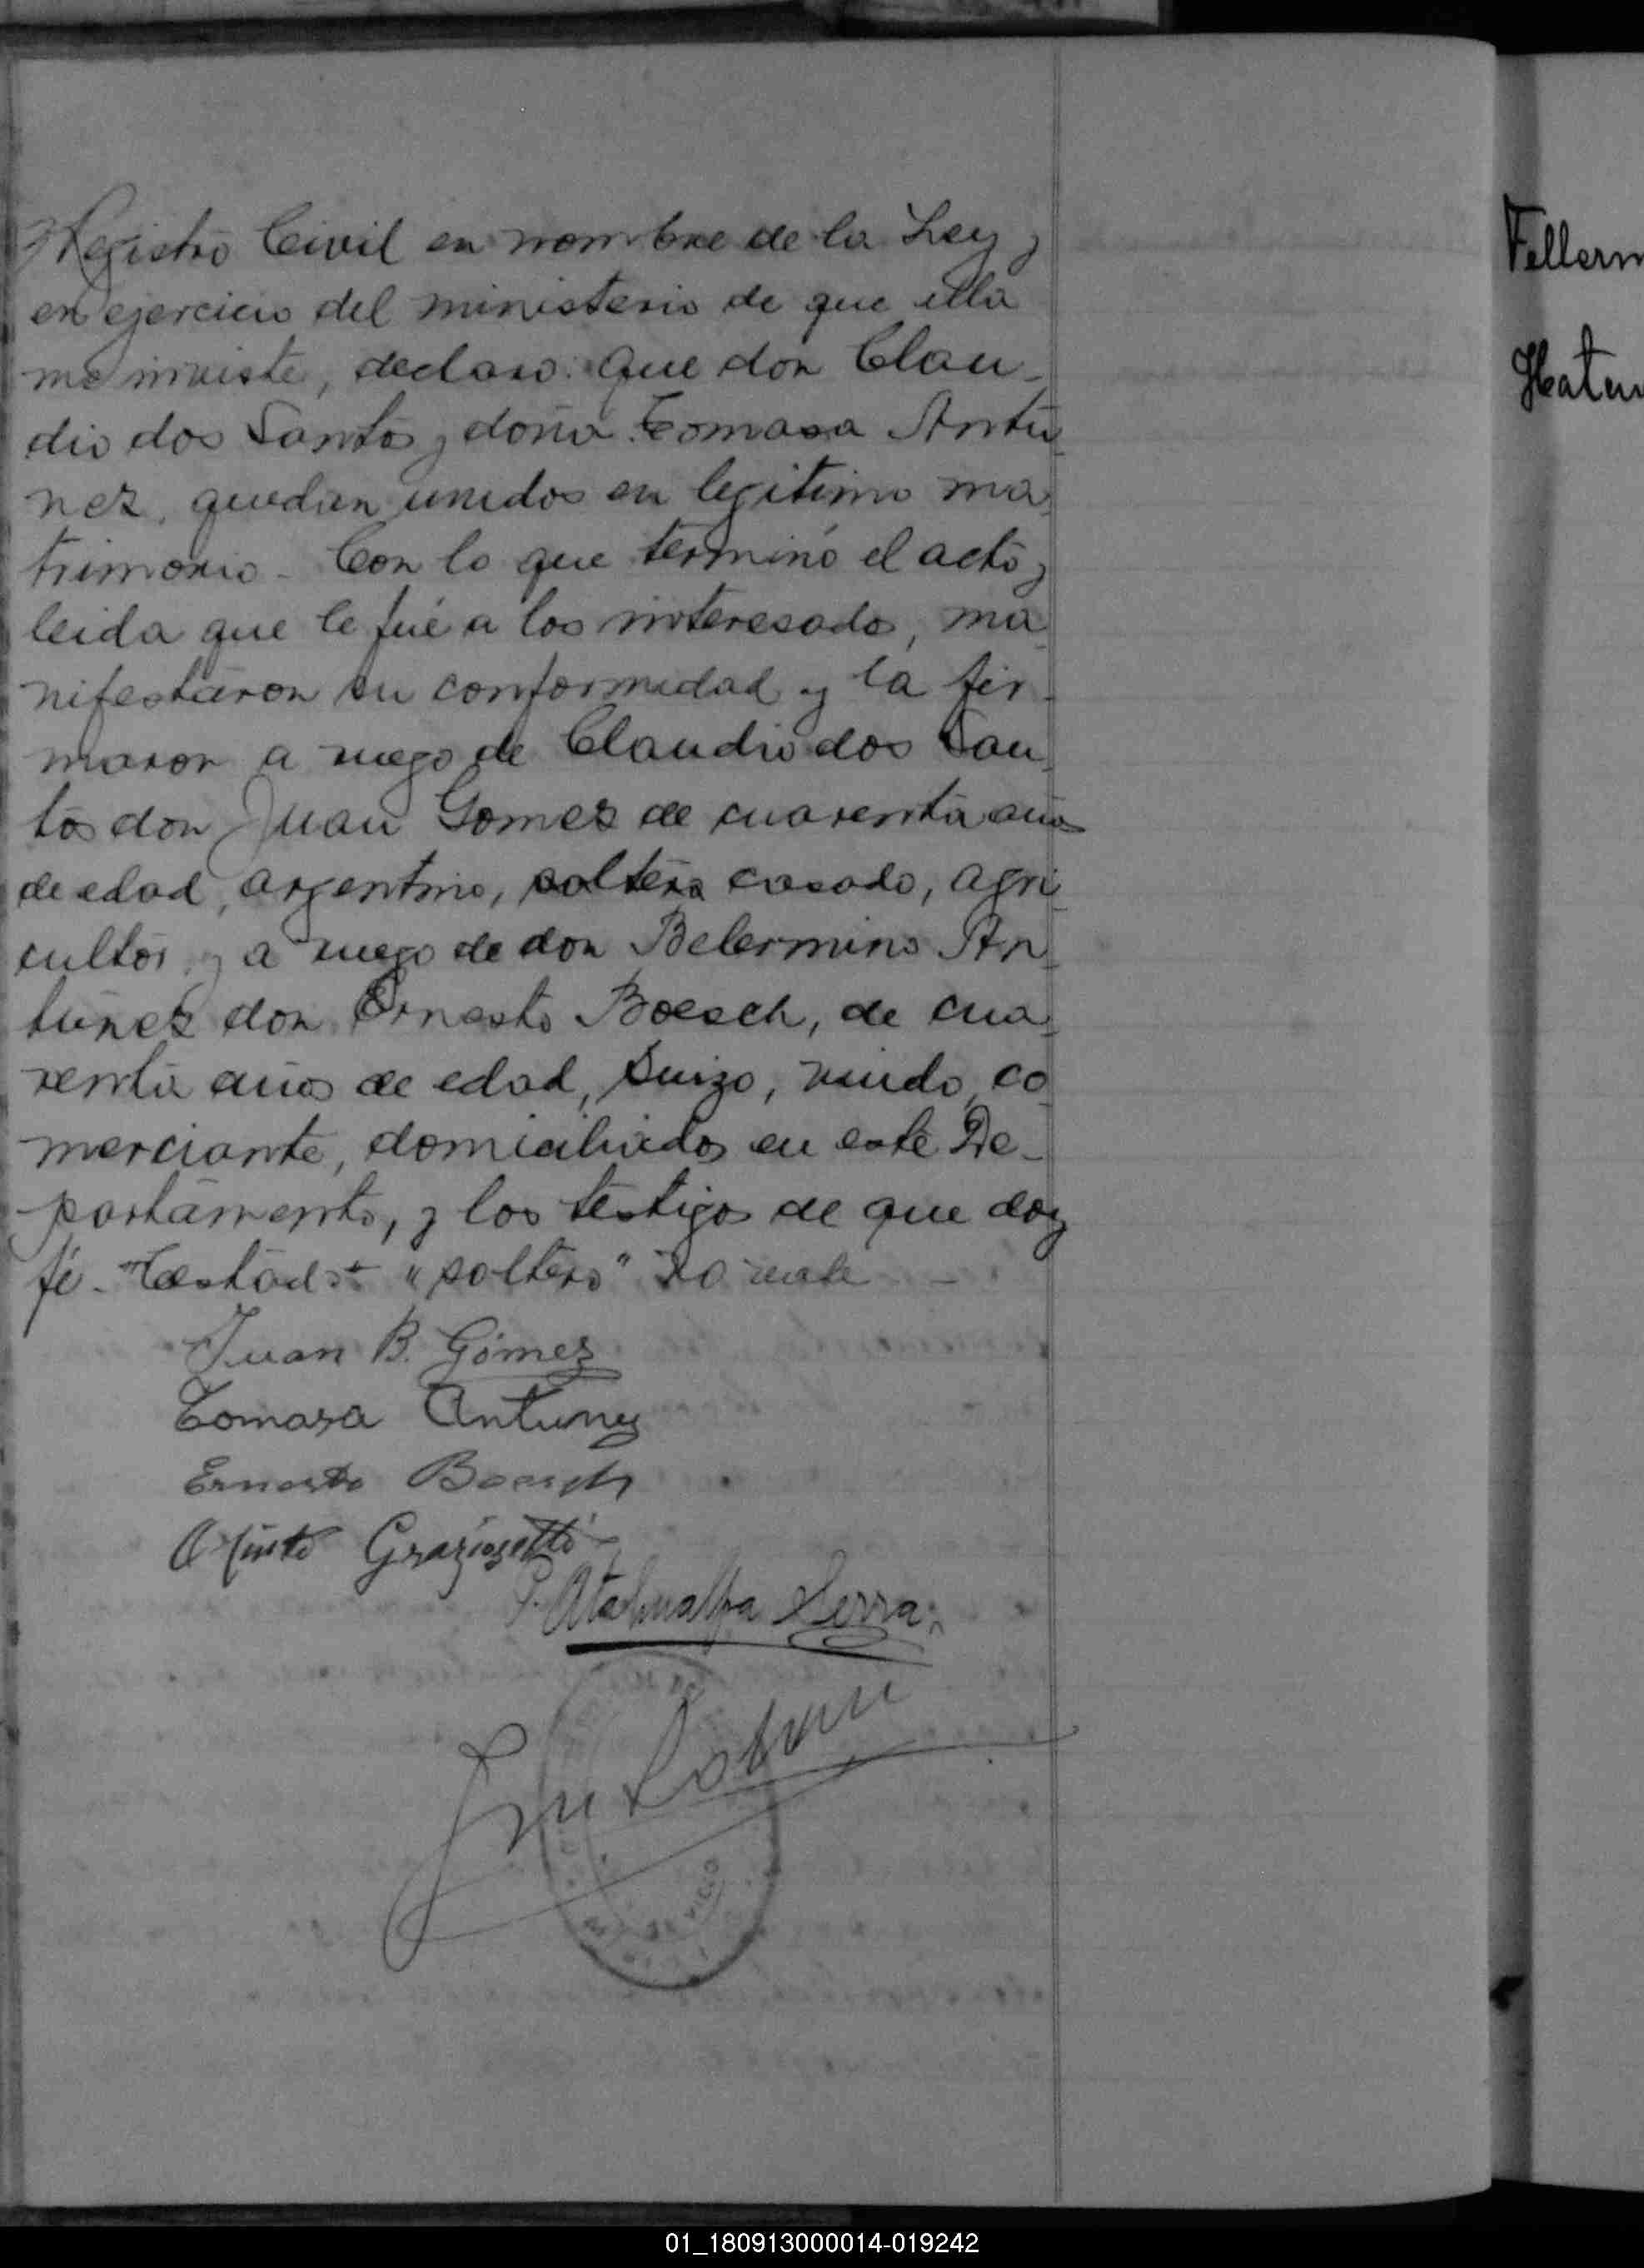 Registro Civil en nombre de la Ley y
en ejercicio del ministerio de que ella
me inviste, declaro: que don Clau-
dio dos Santos y doña Tomasa Antú
nez, quedan unidos en legitimo ma
trimonio - Con lo que terminó el acto y
leida que le fué a los interesados, ma
nifestaron su conformidad y la fir-
maron a ruego de Claudio dos San
tos don Juan Gomez de cuarenta años
de edad, argentino, soltero casado, agri
cultor y a ruego de don Belermino An
túnez don Ernesto Boesch, de cua
renta años de edad, Suizo, viudo, co
merciante, domiciliados en este De-
partamento, y los testigos de que doy
fé. Testado "soltero" no vale
Juan B. Gómez
Tomasa Antunez
Ernesto Boesch
Graziosetti
P. Atahualpa Serra
Fellerm
01_180913000014-019242